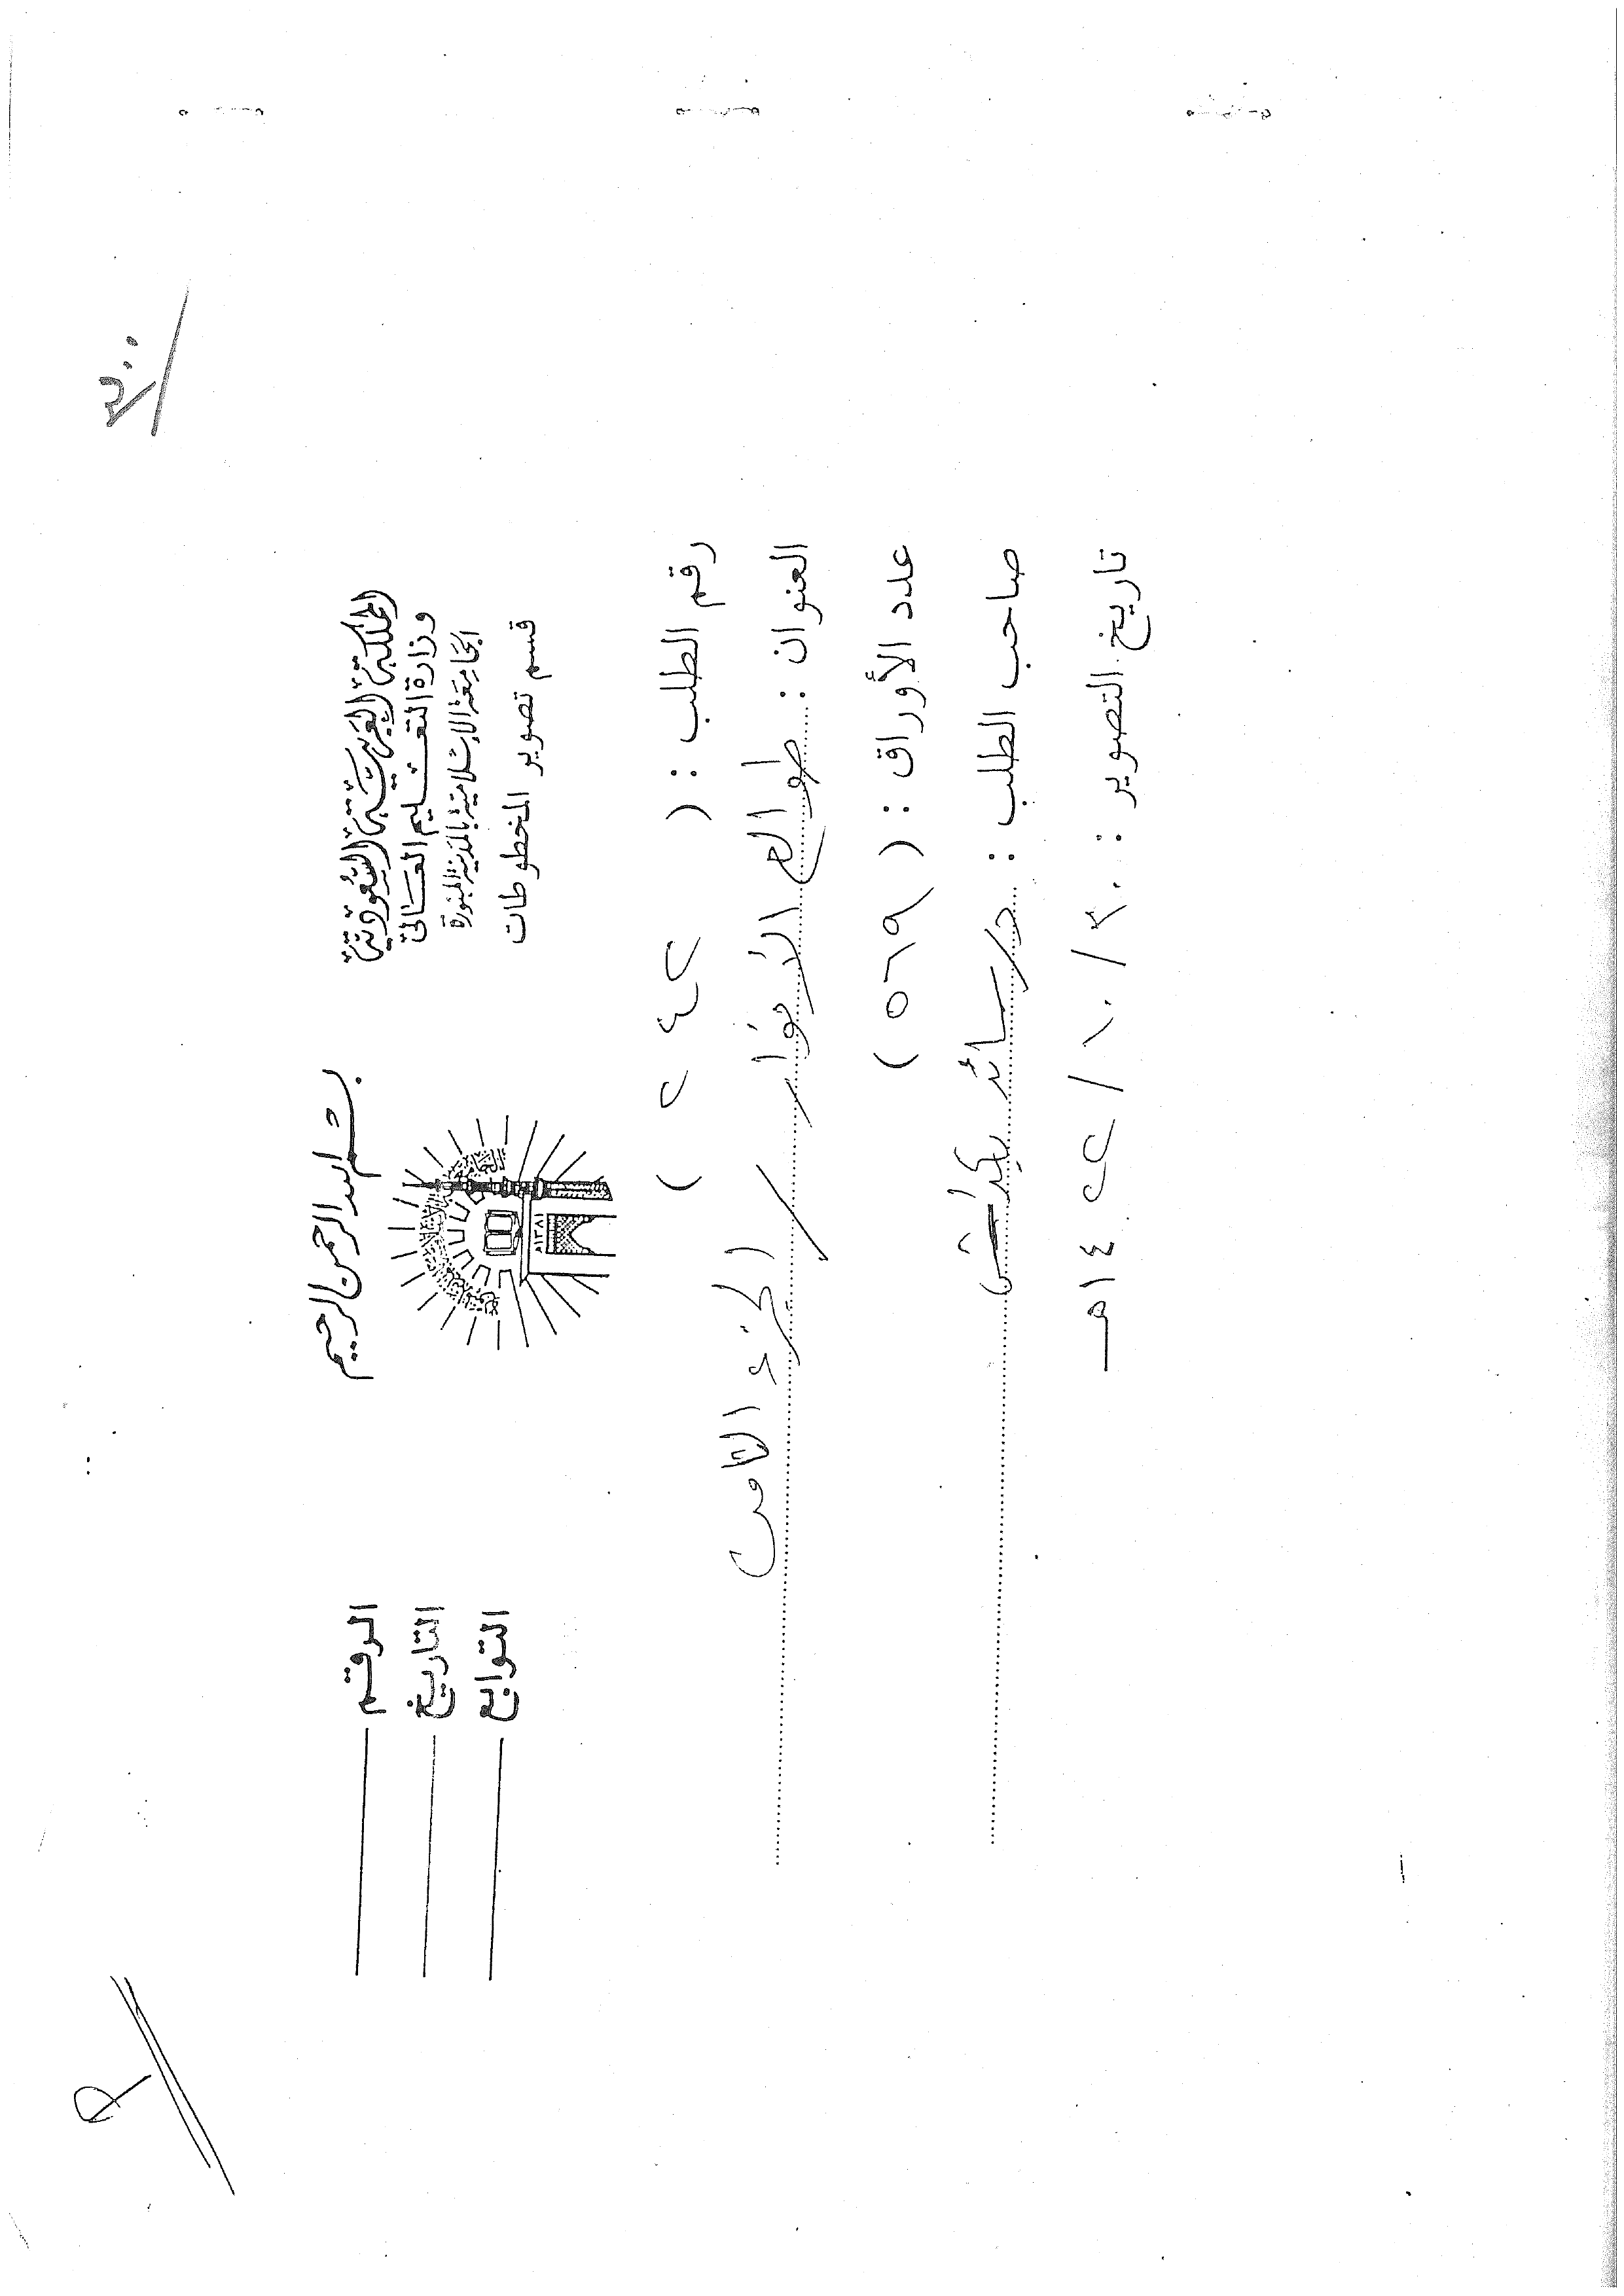 بسم الله الرحمن الرحيم
المملكة العربية السعودية
وزارة التعليم العالي
الجامعة الإسلامية بالمدينة المنورة
قسم تصوير المخطوطات
الرقم
التاريخ
التوابع
١٣٨١هـ
رقم الطلب : ( ٢٤٢ )
العنوان : طوالع الأنوار / الجزء الثامن
عدد الأوراق : ( ٥٦٩ )
صاحب الطلب : د. سائد
تاريخ التصوير : ٢٠ / ١٠ / ١٤٢٢هـ